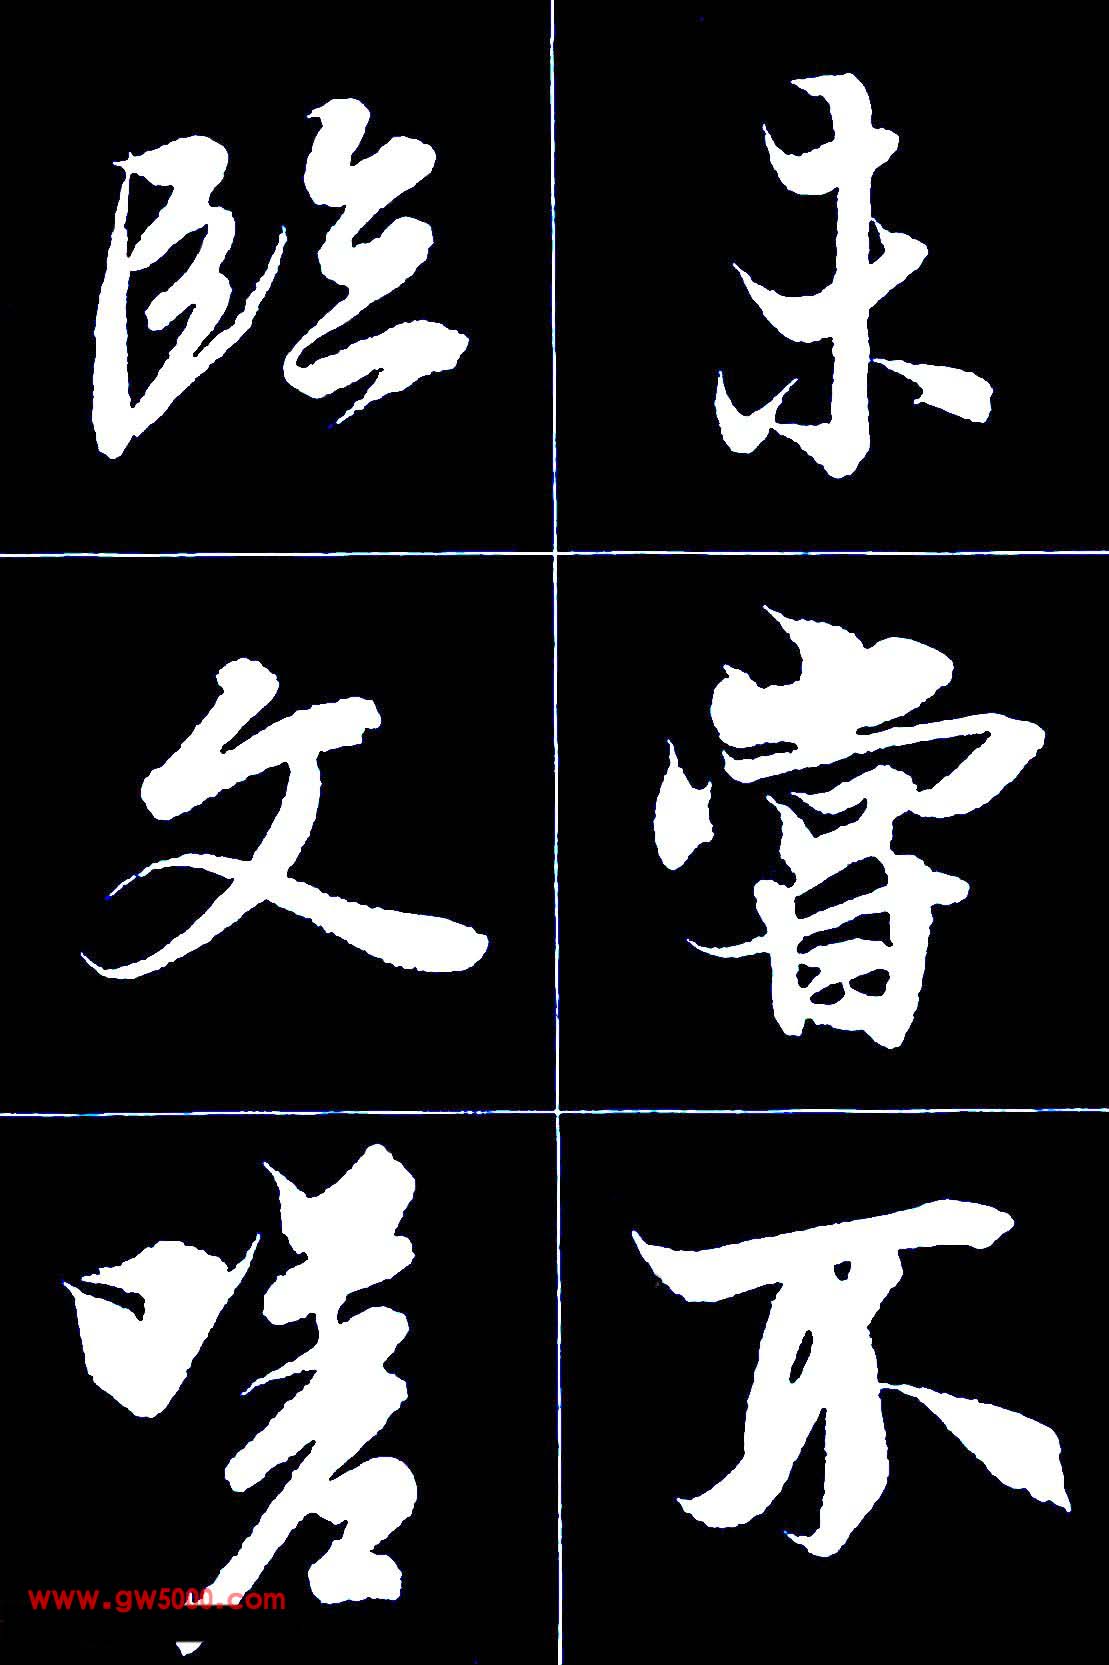 未嘗不
臨文嗟
www.gw5000.com